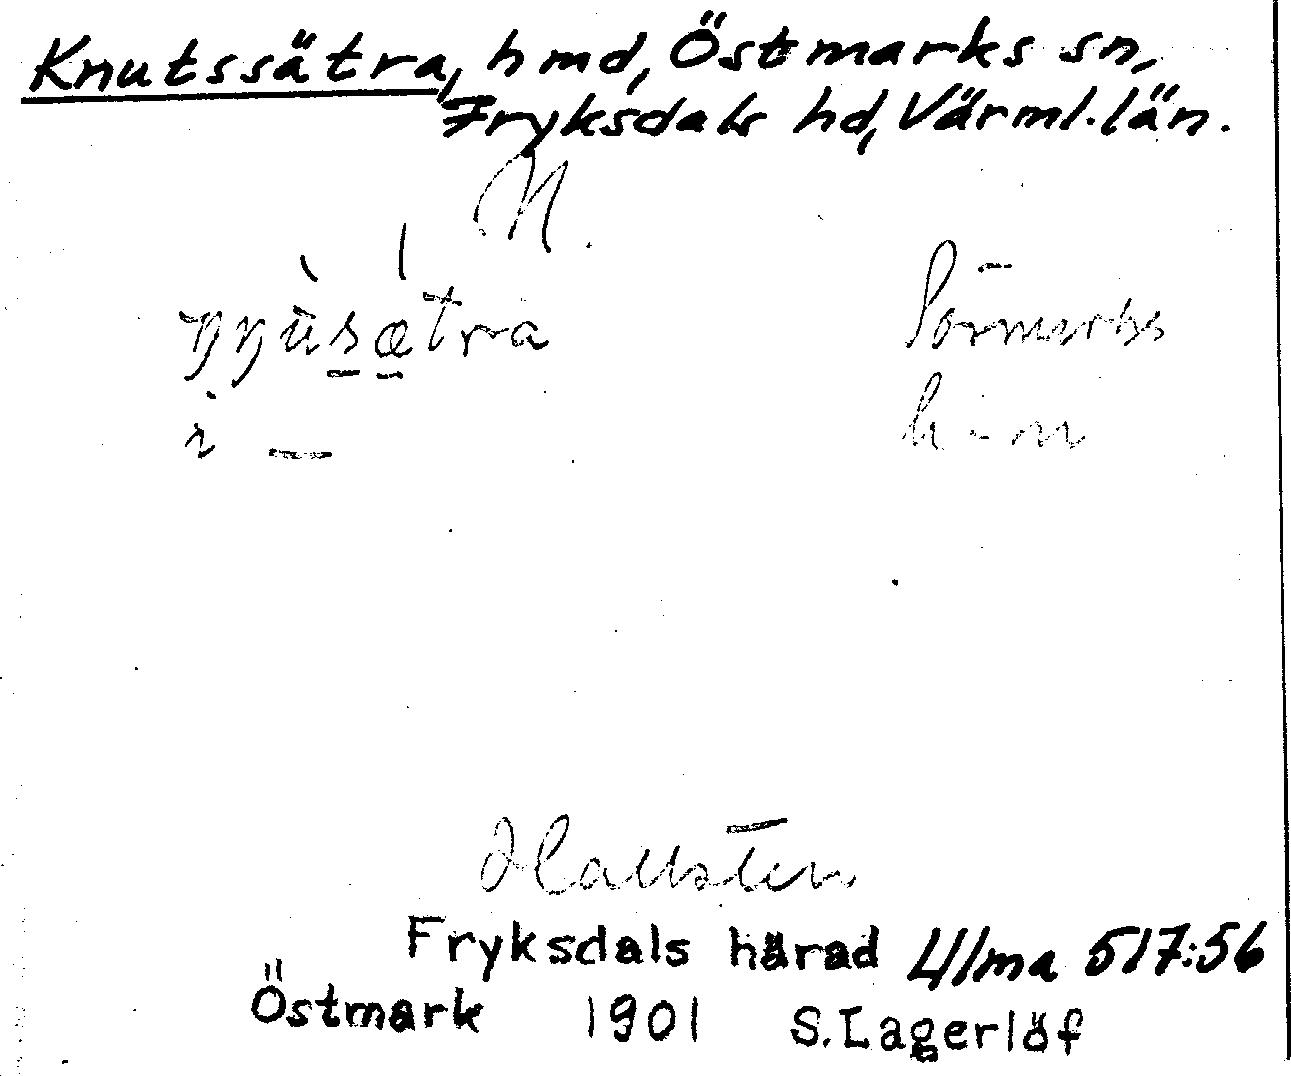 Knutssätra, hmd, Östmarks sn,
Fryksdals hd, Värml. län.
N.
i —
Hallsten
Fryksdals härad Ulma 517:56
Östmark 1901 S. Lagerlöf